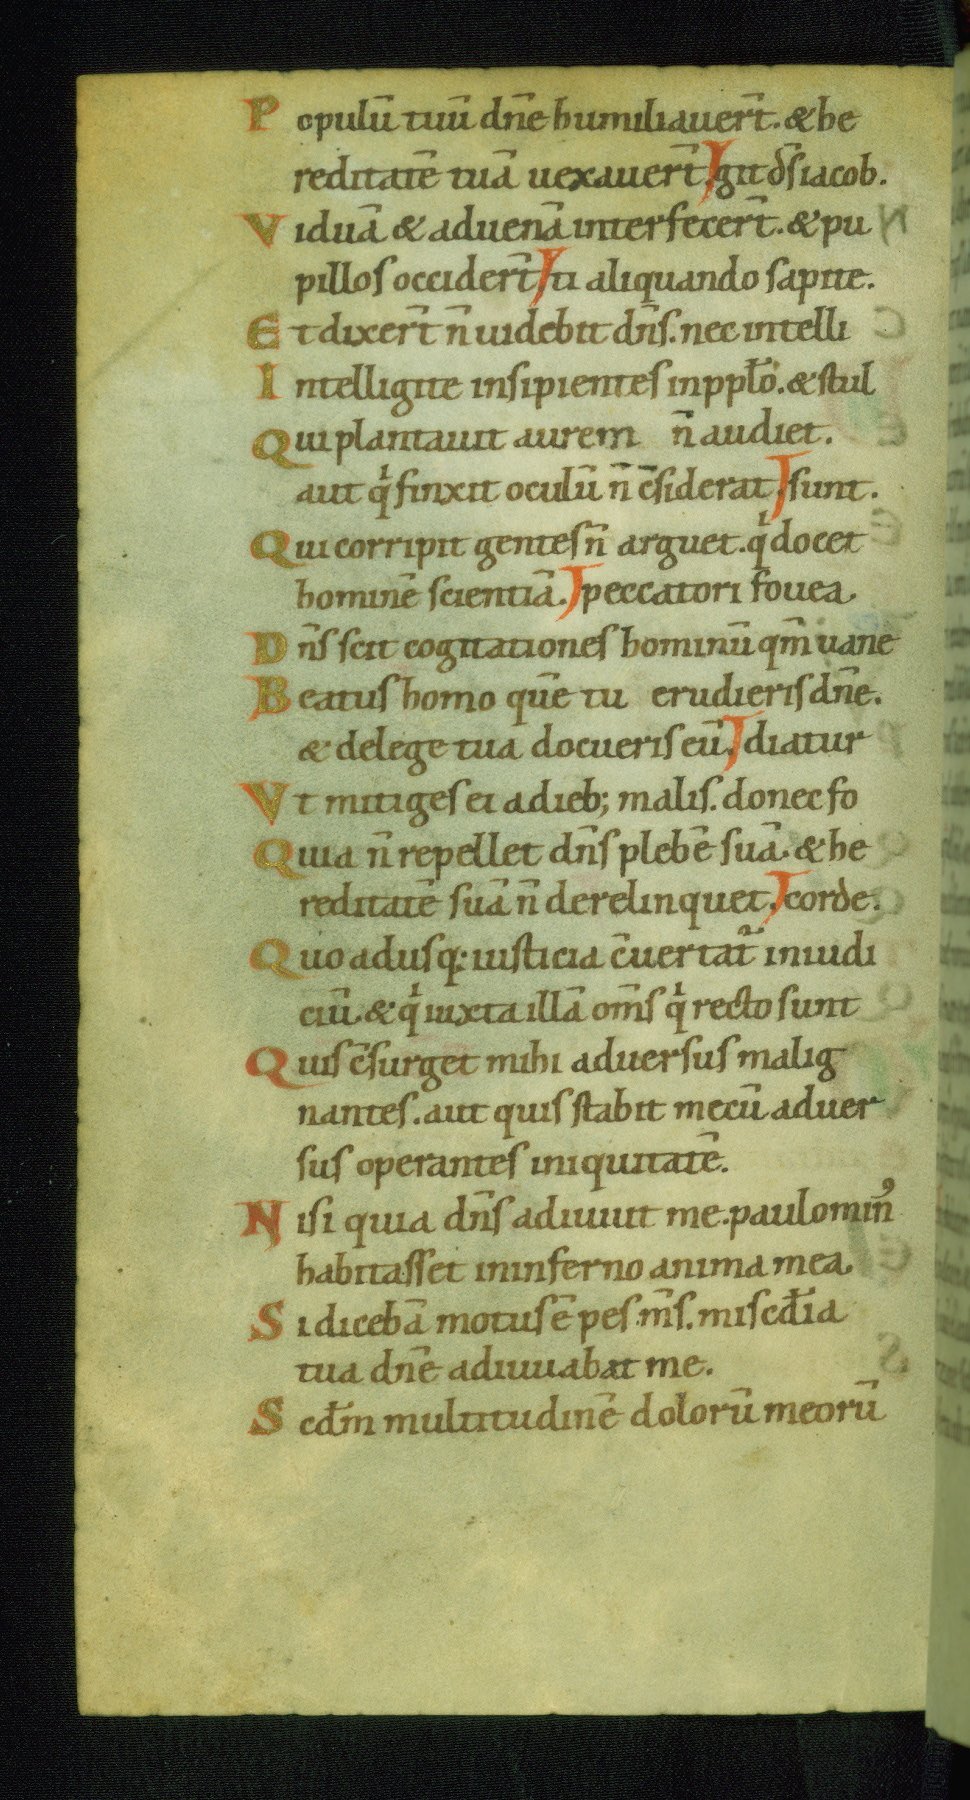 Populū tuū dn̄e humiliauer̄t. & he
reditatē tuā uexauer̄t. git d̄s iacob.
Viduā & aduenā interfecer̄t. & pu
pillos occider̄t. ti aliquando sapite.
Et dixer̄t n̄ uidebit dn̄s. nec intelli
Intelligite insipientes in pplo̅. & stul
Qui plantauit aurem n̄ audiet.
aut qͥ finxit oculū n̄ c̄siderat. sunt.
Qui corripit gentes n̄ arguet. qͥ docet
hominē scientiā. peccatori fouea.
Dn̄s scit cogitationes hominū qm̄ uane
Beatus homo quē tu erudieris dn̄e.
& de lege tua docueris eū. diatur
Vt mitiges ei a dieb; malis. donec fo
Quia n̄ repellet dn̄s plebē suā. & he
reditatē suā n̄ derelinquet. corde.
Quo adusq; iusticia c̄uertat᷑ in iudi
ciū. & qͥ iuxta illā om̄s qͥ recto sunt
Quis c̄surget mihi aduersus malig
nantes. aut quis stabit mecū aduer
sus operantes iniquitatē.
Nisi quia dn̄s adiuuit me. paulomin̄ꝰ
habitasset in inferno anima mea.
Si dicebā motus ē pes m̄s. miscd̄ia
tua dn̄e adiuuabat me.
Scd̄m multitudinē dolorū meorū